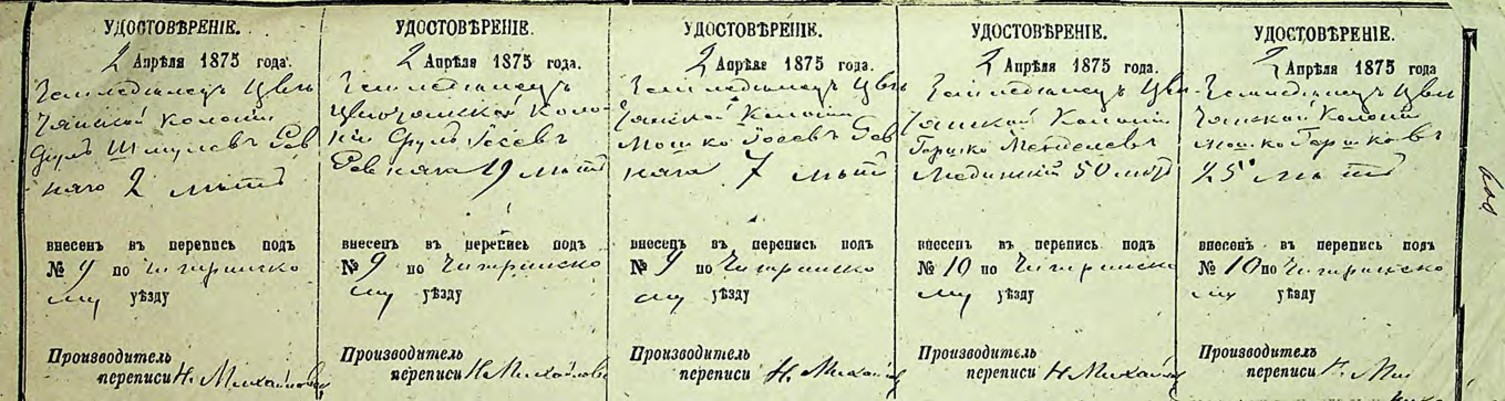 УДОСТОВѢРЕНІЕ.
2 Апрѣля 1875 года.
Земледѣлецъ Цви
тянской колоніи
Сруль Шмулевъ Рев
наго 2 лѣтъ
внесенъ въ перепись подъ
№ 9 по Чигиринско
му уѣзду
Производитель
переписи Н. Михайлов
УДОСТОВѢРЕНІЕ.
2 Апрѣля 1875 года.
Земледѣлецъ
колο-
ніи Сруль Іосевъ
Рев 19 лѣтъ
внесенъ въ перепись подъ
№ 9 по Чигиринско
му уѣзду
Производитель
переписи Н. Михайлов
УДОСТОВѢРЕНІЕ.
2 Апрѣля 1875 года.
Земледѣлецъ Цви
тянской Колоніи
Мошко Іосевъ Рев
7 лѣтъ
внесенъ въ перепись подъ
№ 9 по Чигиринско
му уѣзду
Производитель
переписи Н. Михай
УДОСТОВѢРЕНІЕ.
2 Апрѣля 1875 года.
Земледѣлецъ Цви
тянской Колоніи
Гершко Менделевъ
50 лѣтъ
внесенъ въ перепись подъ
№ 10 по Чигиринско
му уѣзду
Производитель
переписи Н. Михай
УДОСТОВѢРЕНІЕ.
2 Апрѣля 1875 года
Земледѣлецъ Цви
тянской Колоніи
Мошко Гершковъ
25 лѣтъ
внесенъ въ перепись подъ
№ 10 по Чигиринско
му уѣзду
Производитель
переписи Н. Ми